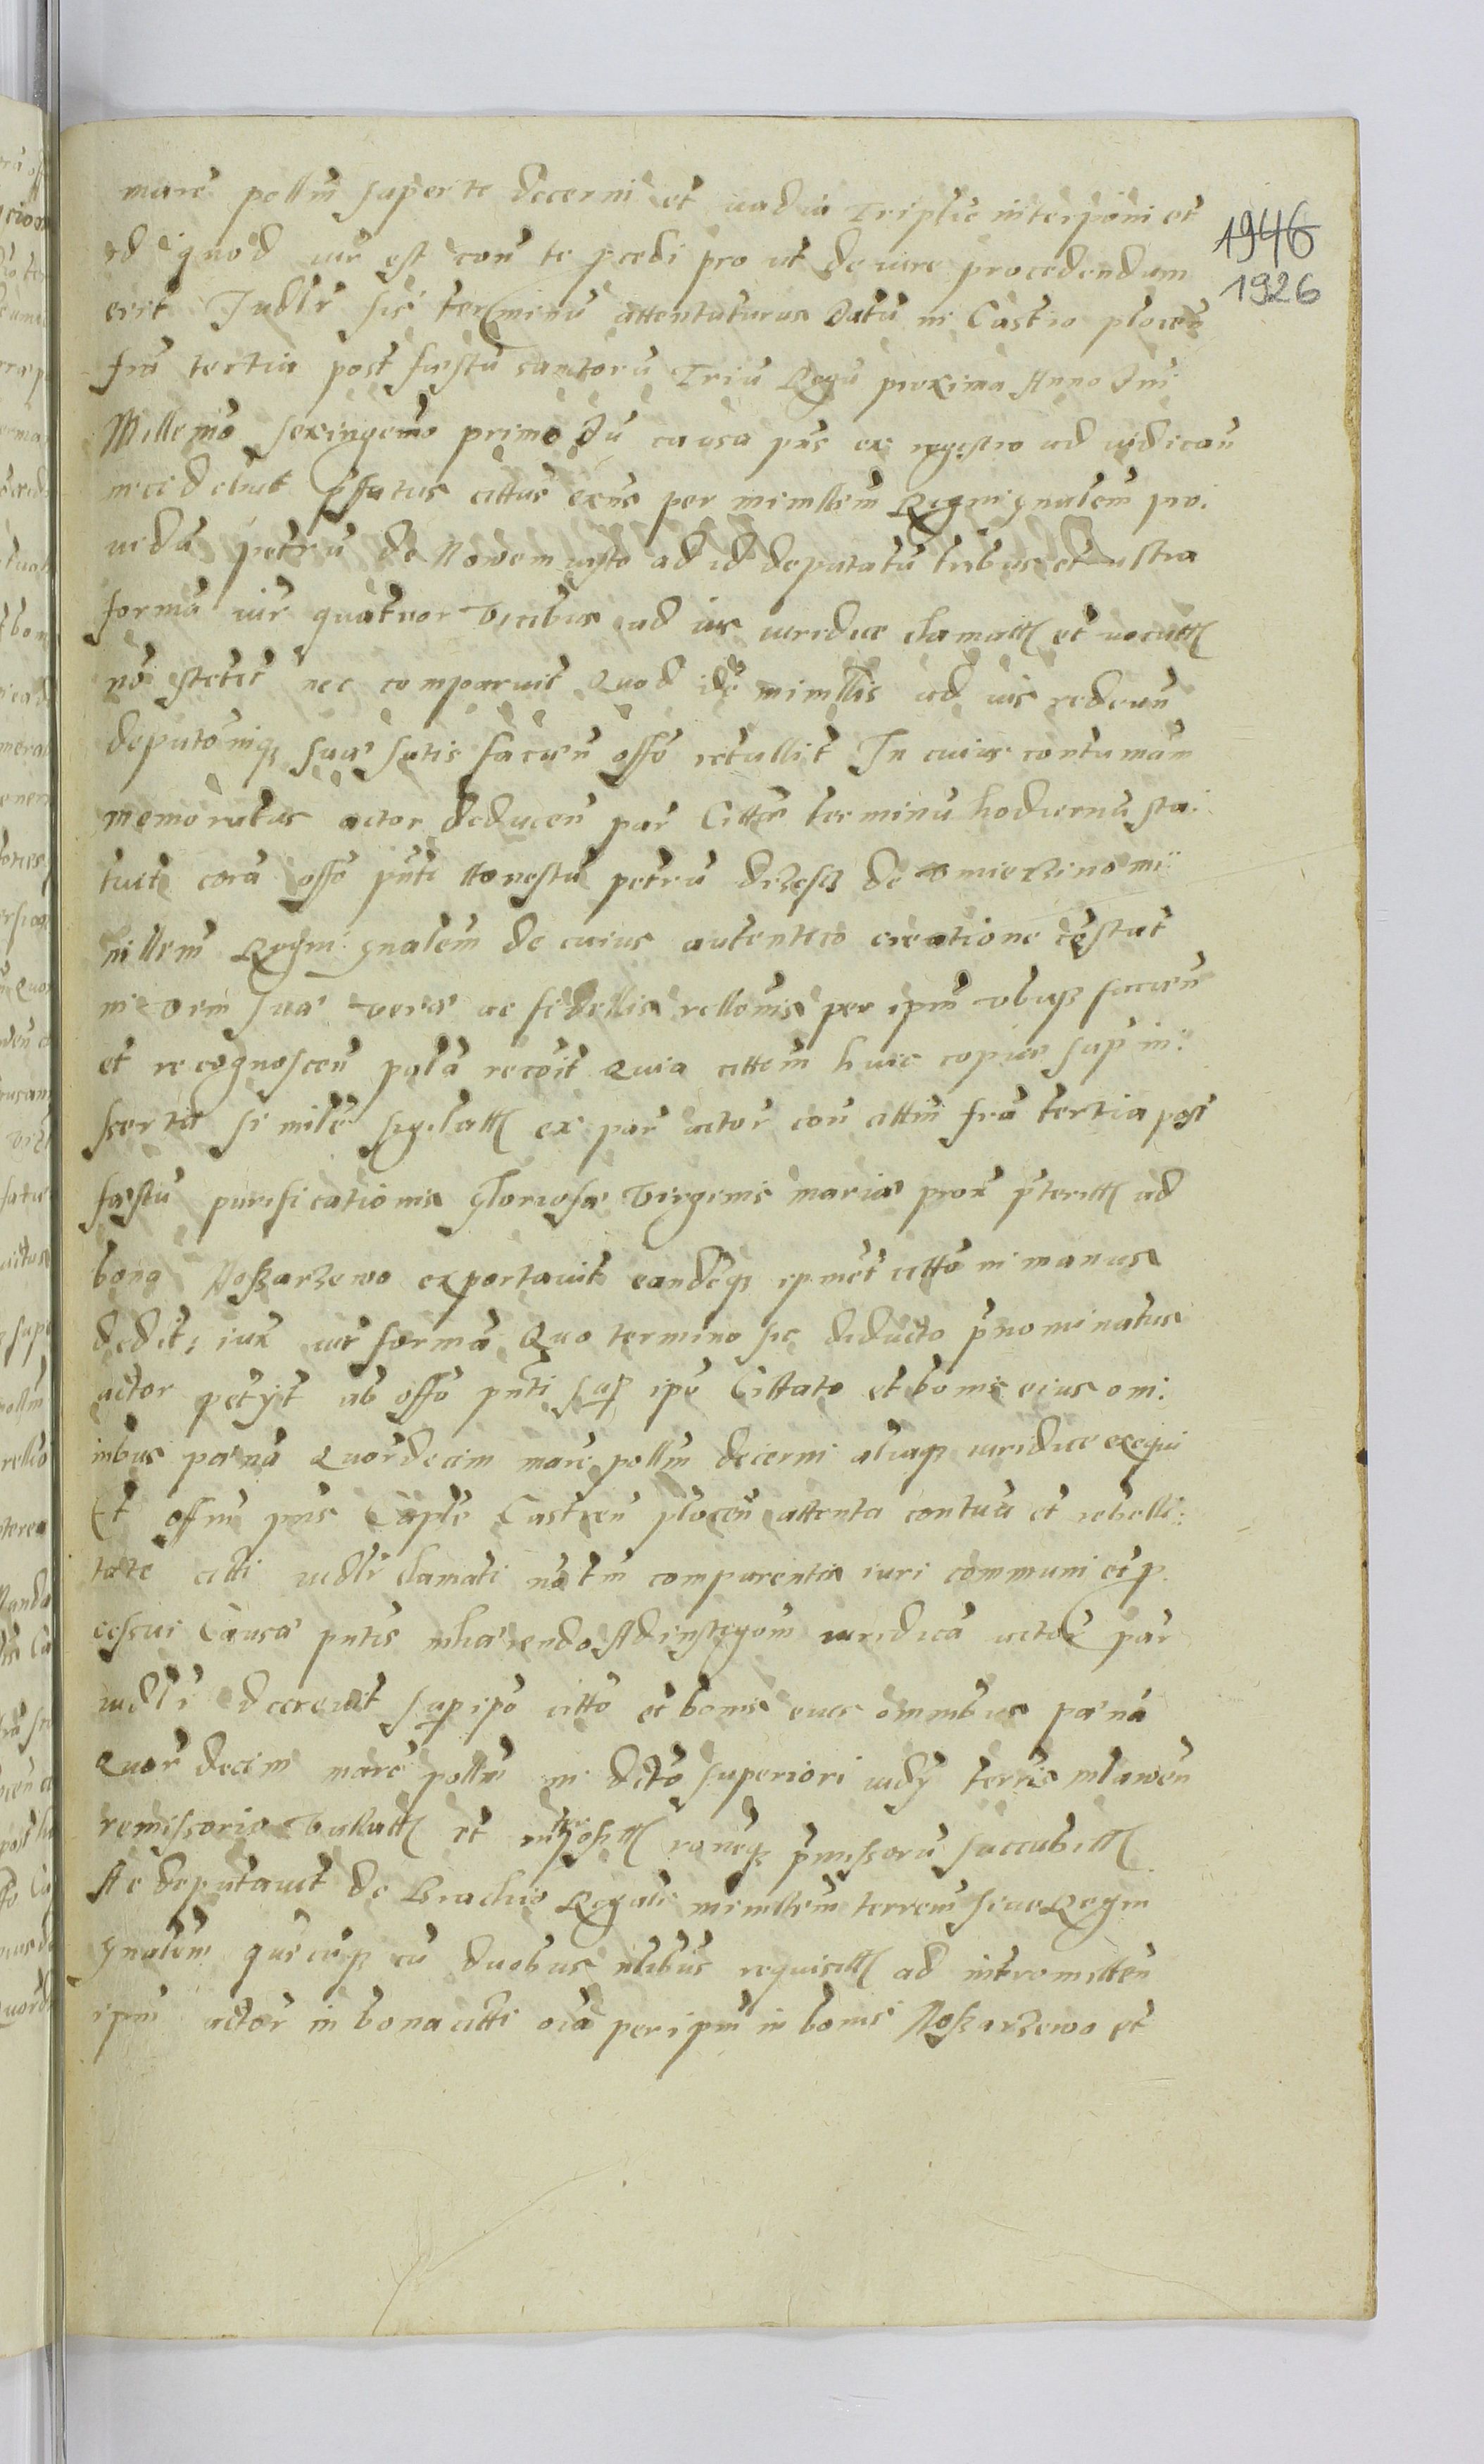 marc pollm super te decerni et vadia Triplic interponi et
1946
id quod iur est con te pcedi pro ut de iure procedendum
1926
erit Judlr sis terminu attentaturus Datu in Castro plocen
fra tertia post festu sanctoru Triu Regu proxima Anno Dni
Millemo sexingemo primo Du causa pns ex regestro ad iudican
incidebat pffatus cittus exns per minlem Regni gnalem pro:
vidu petru de Nowemiasto ad id deputatu tribus et
forma iur quatuor vicibus ad ius iuridice clamatt et vocatt
no stetit nec comparuit Quod ide minllis ad ius redeun
deputoniq sua satis facien offo retullit In cuius contumam
memoratus actor deducen par Citten terminu hodiernu sta:
tuit cora offo pnti Honestu petru de omierzino mi:
nillem Regni gnalem de cuius autentico creatione costat
in vim sua vera ac fidellis rellonis per ipm ubiq facien
et recognoscen pala recoit Quia cittem huic copia sup in:
serta simile sigilatt ex par actor con cittm fra tertia post
festu purificationis Gloriosa Virginis maria prox pteritt ad
bona Noßarzewo exportavit eandeq ipmet citto in manus
dedit, iux iur forma Quo termino sic deducto pnominatus
actor petyt ab offo pnti sup ipo Cittato et bonis eius omi:
nibus poena Quordecim marc pollm decerni aliaq iuridice exequi
Et offm pns Caple Castren plocen attenta contua et rebelli:
tate citti iudlr clamati no tm comparentis iuri communi et p
cessui Causa pntis inhaerendo Ad instigom iuridica actor par
iudlr decrevit sup ipo citto et bonis eius omnibus poena
Quor decim marc pollm in dcto superiori iudy terris mlawen
remissoria vallatt et interpositt roneq pmissoru succubitt
Ac deputavit de Brachio Regali minllem terrem sive Regni
gnalem quecuq cu duobus nlibus requisitt ad intromitten
ipm actor in bona citti oia per ipm in bonis Noßarzewo et